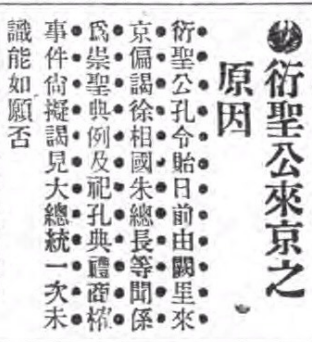 衍聖公來京之
原因
衍聖公孔令貽日前由闕里來
京偏謁徐相國朱總長等聞係
爲崇聖典例及祀孔典禮商榷
事件尙擬謁見大總統一次未
識能如願否